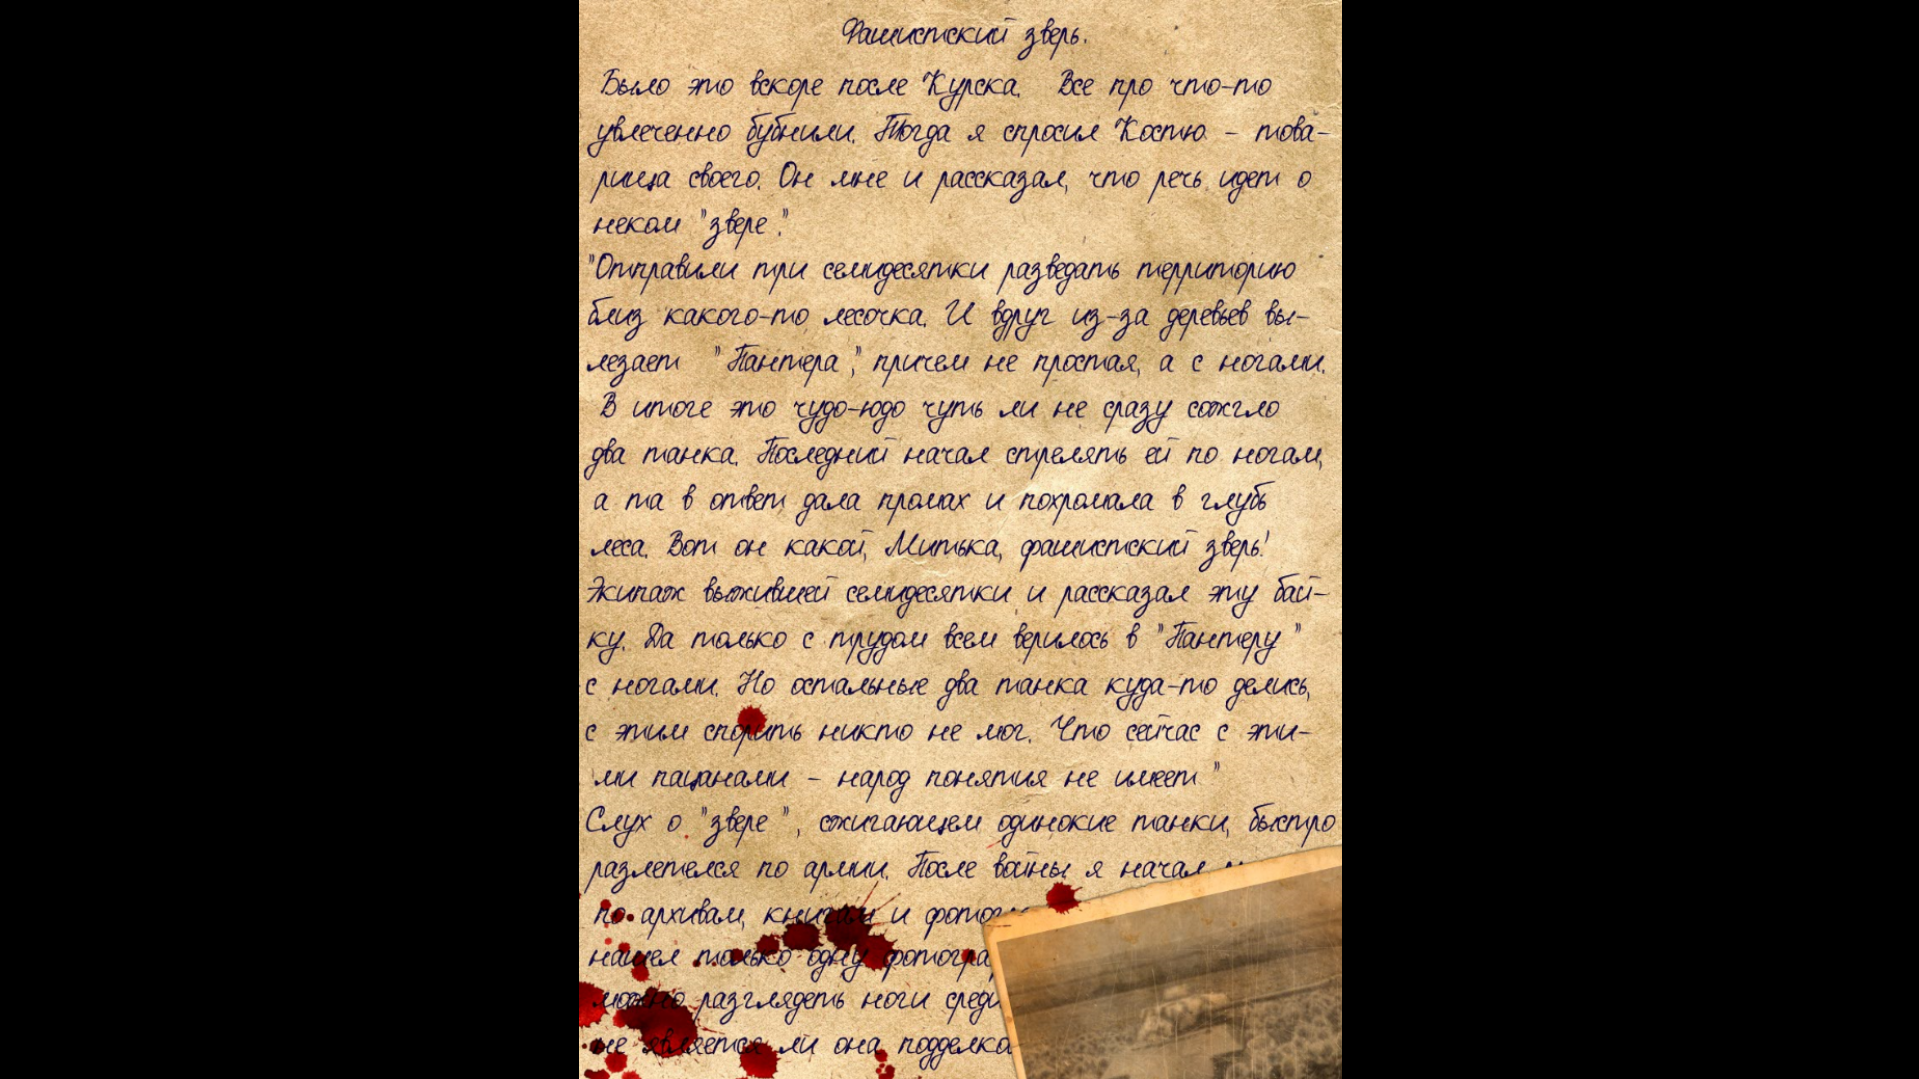 Фашистский зверь.
Было это вскоре после Курска. Все про что-то
увлеченно бубнили. Тогда я спросил Костю - това-
рища своего. Он мне и рассказал, что речь идет о
неком "звере".
"Отправили три семидесятки разведать территорию
близ какого-то лесочка. И вдруг из-за деревьев вы-
лезает "Пантера", причем не простая, а с ногами.
В итоге это чудо-юдо чуть ли не сразу сожгло
два танка. Последний начал стрелять ей по ногам,
а та в ответ дала промах и похромала в глубь
леса. Вот он какой, Митька, фашистский зверь!
Экипаж выжившей семидесятки и рассказал эту бай-
ку. Да только с трудом всем верилось в "Пантеру"
с ногами. Но остальные два танка куда-то делись,
с этим спорить никто не мог. Что сейчас с эти-
ми пацанами - народ понятия не имеет"
Слух о "звере", сжигающем одинокие танки, быстро
разлетелся по армии. После войны я начал
по архивам, книгам и
нашел только одну
можно разглядеть ноги
не является ли она